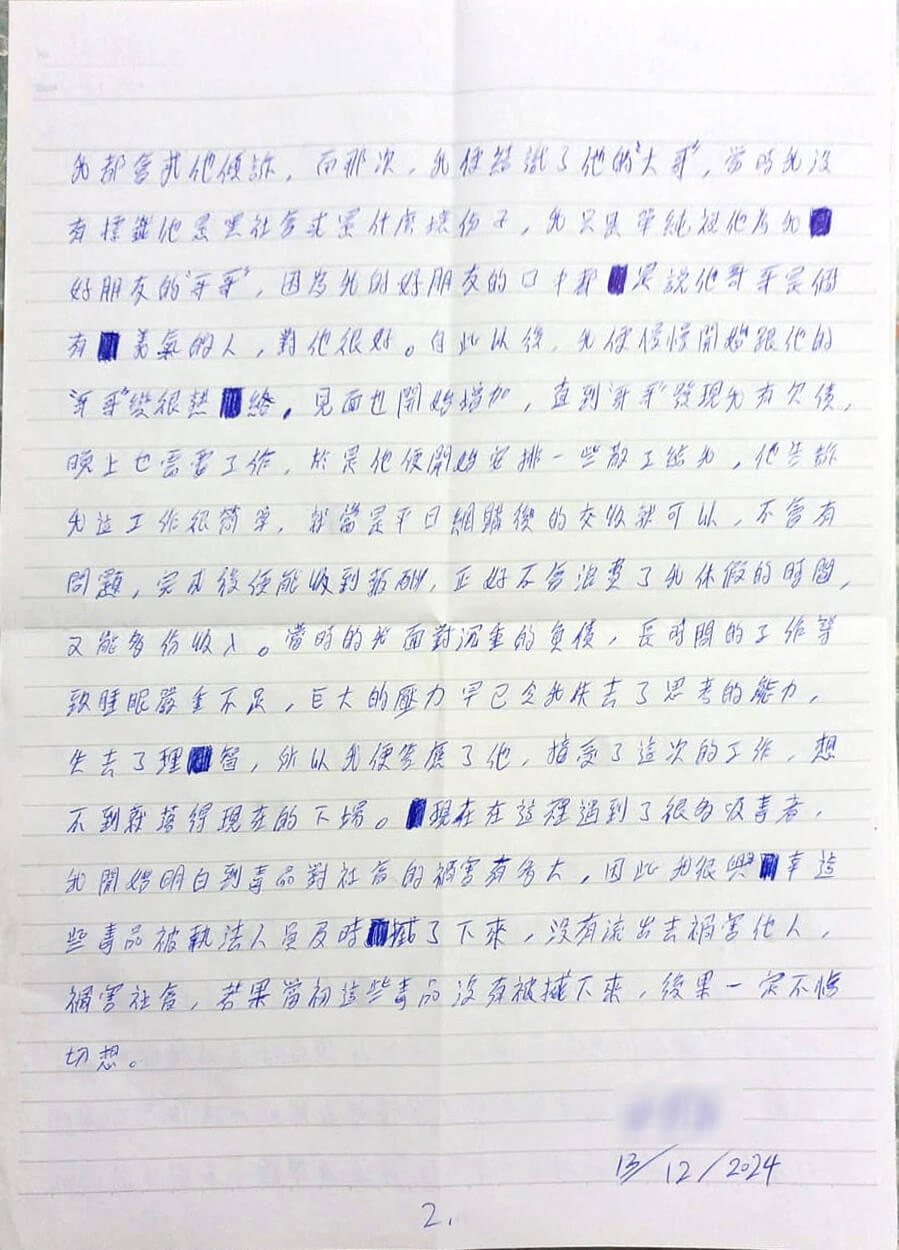 我都會求他傾訴，而那次，我便結識了他的"大哥"，當時我沒
有標籤他是黑社會或是什麼壞份子，我只是單純視他為我
好朋友的"哥哥"，因為我的好朋友的口中都是說他哥哥是個
有義氣的人，對他很好。自此以後，我便慢慢開始跟他的
"哥哥"變很熱絡，見面也開始增加，直到"哥哥"發現我有欠債，
晚上也需要工作，於是他便開始安排一些散工給我，他告訴
我這工作很簡單，就當是平日網購後的交收就可以，不會有
問題，完成後便能收到報酬，正好不會浪費了我休假的時間，
又能多份收入。當時的我面對沉重的負債，長時間的工作導
致睡眠嚴重不足，巨大的壓力早已令我失去了思考的能力，
失去了理智，所以我便答應了他，接受了這次的工作，想
不到就落得現在的下場。現在在這裡遇到了很多吸毒者，
我開始明白到毒品對社會的禍害有多大，因此我很興幸這
些毒品被執法人員及時撼了下來，沒有流出去禍害他人，
禍害社會，若果當初這些毒品沒有被撼下來，後果一定不堪
切想。
13/12/2024
2.